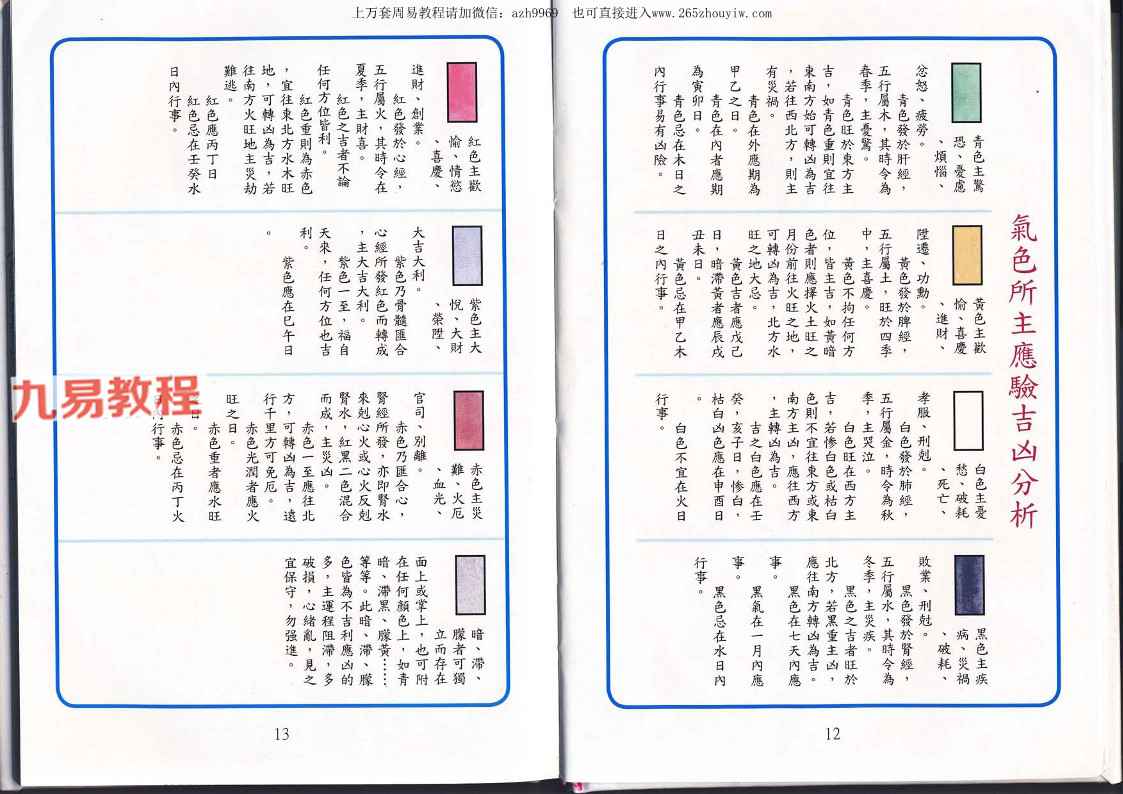 上万套周易教程请加微信：azh9969　也可直接进入www.265zhouyiw.com
氣色所主應驗吉凶分析
青色主驚
恐、憂慮
、煩惱、
忿怒、疲勞。
青色發於肝經，
五行屬木，其時令為
春季，主憂驚。
青色旺於東方主
吉，如青色重則宜往
東南方始可轉凶為吉
，若往西北方，則主
有災禍。
青色在外應期為
甲乙之日。
青色在內者應期
為寅卯日。
青色忌在木日之
內行事易有凶險。
黃色主歡
愉、喜慶
、進財、
陞遷、功勳。
黃色發於脾經，
五行屬土，旺於四季
中，主喜慶。
黃色不拘任何方
位，皆主吉，如黃暗
色者則應擇火土旺之
月份前往火旺之地，
可轉凶為吉，北方水
旺之地大忌。
黃色吉者應戊己
日，暗滯黃者應辰戌
丑未日。
黃色忌在甲乙木
日之內行事。
白色主憂
愁、破耗
、死亡、
孝服、刑剋。
白色發於肺經，
五行屬金，時令為秋
季，主哭泣。
白色旺在西方主
吉，若慘白色或枯白
色則不宜往東方或東
南方主凶，應往西方
，主轉凶為吉。
吉之白色應在壬
癸，亥子日，慘白，
枯白凶色應在申酉日
。
白色不宜在火日
行事。
黑色主疾
病、災禍
、破耗、
敗業、刑剋。
黑色發於腎經，
五行屬水，其時令為
冬季，主災疾。
黑色之吉者旺於
北方，若黑重主凶，
應往南方轉凶為吉。
黑色在七天內應
事。
黑氣在一月內應
事。
黑色忌在水日內
行事。
12
紅色主歡
愉、情慾
、喜慶、
進財、創業。
紅色發於心經，
五行屬火，其時令在
夏季，主財喜。
紅色之吉者不論
任何方位皆利。
紅色重則為赤色
，宜往東北方水木旺
地，可轉凶為吉，若
往南方火旺地主災劫
難逃。
紅色應丙丁日
紅色忌在壬癸水
日內行事。
紫色主大
悅、大財
、榮陞、
大吉大利。
紫色乃骨髓匯合
心經所發紅色而轉成
，主大吉大利。
紫色一至，福自
天來，任何方位也吉
利。
紫色應在巳午日
。
赤色主災
難、火厄
、血光、
官司、別離。
赤色乃匯合心，
腎經所發，亦即腎水
來剋心火或心火反剋
腎水，紅黑二色混合
而成，主災凶。
赤色一至應往北
方，可轉凶為吉，遠
行千里方可免厄。
赤色光潤者應火
旺之日。
赤色重者應水旺
日。
赤色忌在丙丁火
內行事。
暗、滯、
朦者可獨
立而存在
面上或掌上，也可附
在任何顏色上，如青
暗、滯黑、朦黃……
等等。此暗、滯、朦
色皆為不吉利應凶的
多，主運程阻滯，多
破損，心緒亂，見之
宜保守，勿強進。
13
九易教程